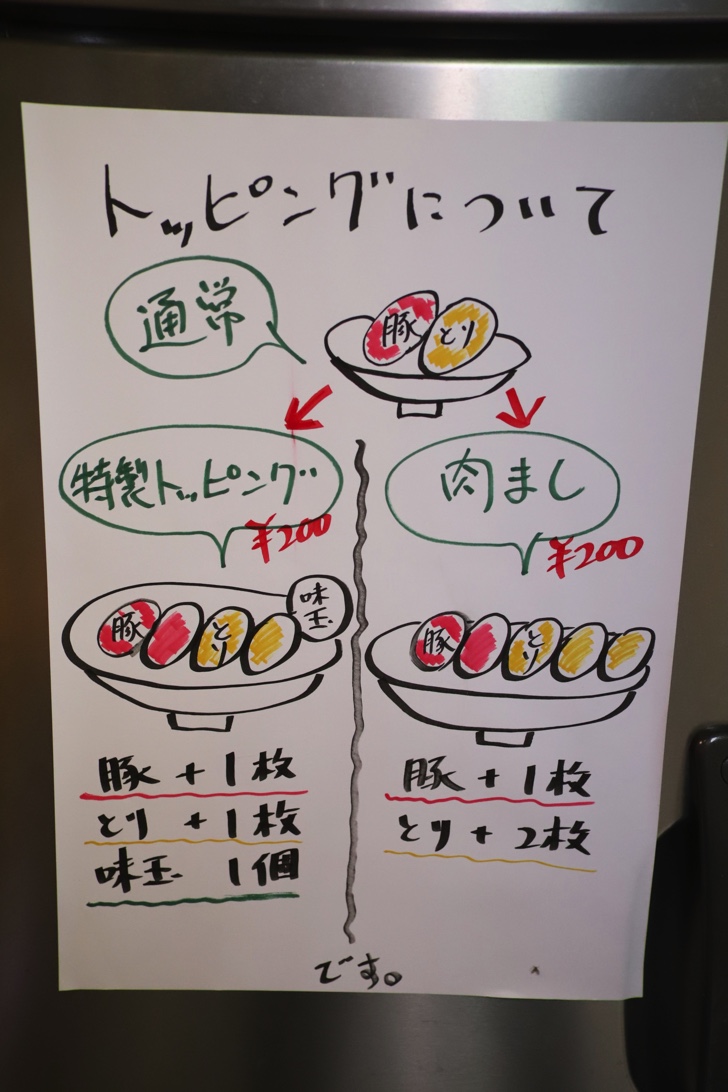 トッピングについて
通常
豚 とり
特製トッピング
¥200
肉まし
¥200
豚 とり 味玉
豚 とり
豚 + 1枚
とり + 1枚
味玉 1個
豚 + 1枚
とり + 2枚
です。